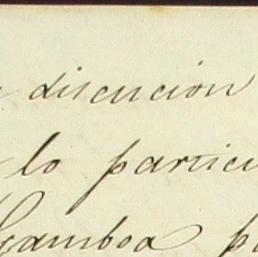 discución
lo particu
Gamboa p